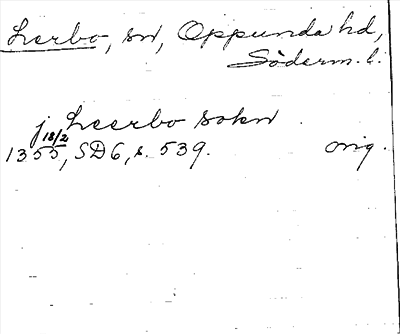 Lerbo, sn, Oppunda hd,
Söderm. l.
j Leerbo sokn
18/2
1355, SD6, s. 539. orig.